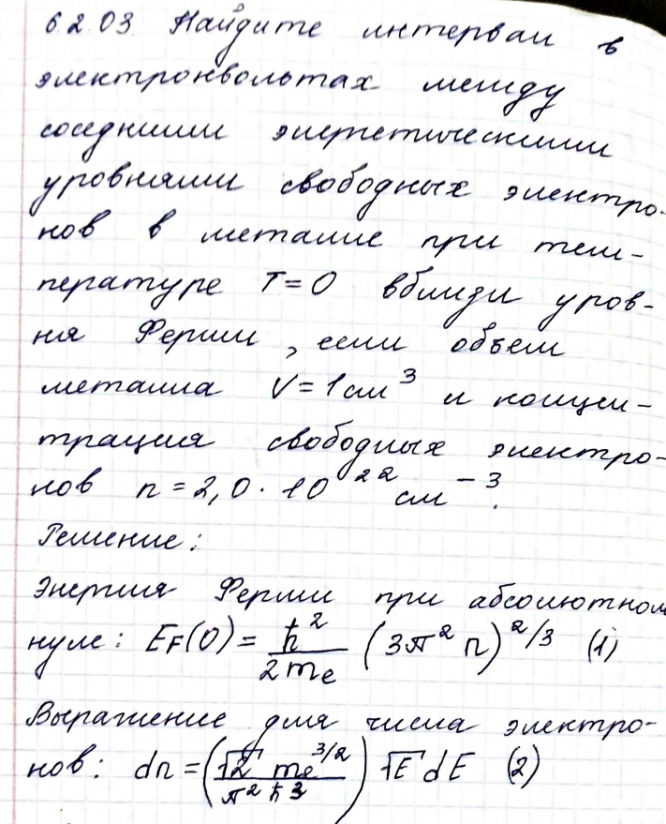 6.2.03. Найдите интервал в
электронвольтах между
соседними энергетическими
уровнями свободных электро-
нов в металле при тем-
пературе T=0 вблизи уров-
ня Ферми, если объем
металла V=1см³ и концен-
трация свободных электро-
нов n=2,0·10²² см⁻³.
Решение:
Энергия Ферми при абсолютном
нуле: EF(0) = ħ²/2me (3π² n)^2/3 (1)
Выражение для числа электро-
нов: dn = (√2 me^3/2 / π² ħ³) √E dE (2)